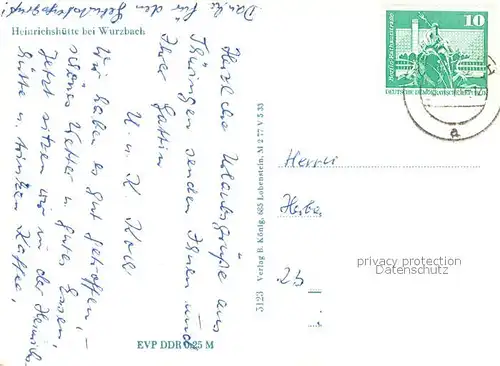 Danke für den
Geburtstagsgruß!
Heinrichshütte bei Wurzbach
Herzliche Urlaubsgrüße aus
Thüringen senden Ihnen und
Ihrer Gattin
U. u. K. Koch
Wir haben es gut getroffen, –
schönes Wetter u. gutes Essen,
Jetzt sitzen wir in der Heinrichs-
hütte u. trinken Kaffee,
EVP DDR 0,25 M
5123 Verlag B. König, 685 Lobenstein, M 2 77 V 5 33
10
DEUTSCHE DEMOKRATISCHE REPUBLIK
a
Herrn
25
privacy protection
Datenschutz